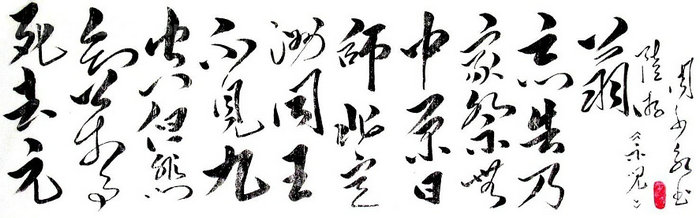 死去元
知萬事
空但悲
不見九
洲同王
師北定
中原日
家祭無
忘告乃
翁
陸游示兒
周永書